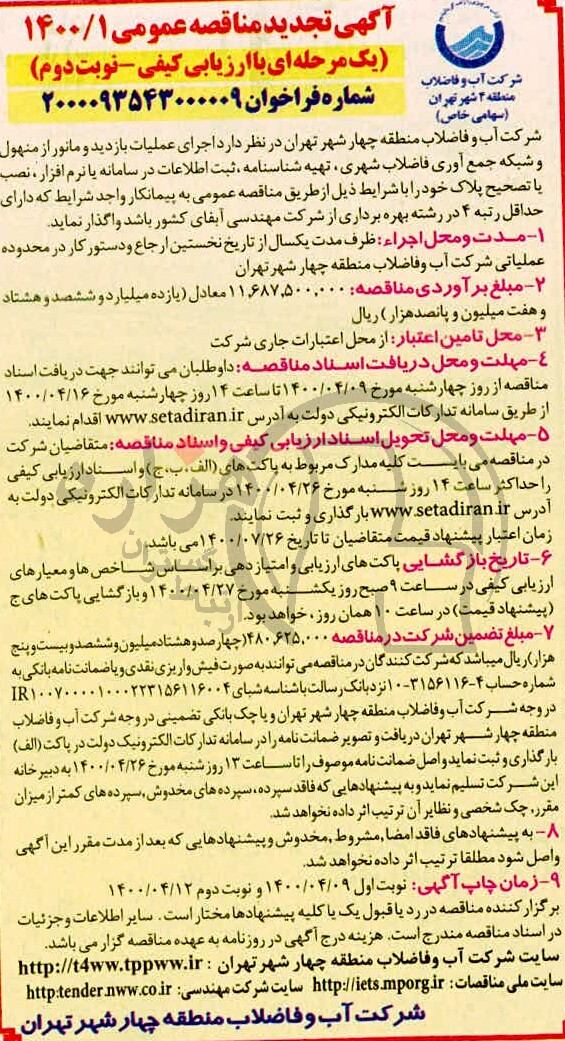 آگهی تجدید مناقصه عمومی ۱۴۰۰/۱
(یک مرحله‌ای با ارزیابی کیفی – نوبت دوم)
شماره فراخوان ۲۰۰۰۰۹۳۵۴۳۰۰۰۰۰۹
شرکت آب و فاضلاب
منطقه ۴ شهر تهران
(سهامی خاص)
شرکت آب و فاضلاب منطقه چهار شهر تهران در نظر دارد اجرای عملیات بازدید و مانور از منهول
و شبکه جمع آوری فاضلاب شهری ، تهیه شناسنامه ، ثبت اطلاعات در سامانه یا نرم افزار ، نصب
یا تصحیح پلاک خود را با شرایط ذیل از طریق مناقصه عمومی به پیمانکار واجد شرایط که دارای
حداقل رتبه ۴ در رشته بهره برداری از شرکت مهندسی آبفای کشور باشد واگذار نماید.
۱- مدت و محل اجراء: ظرف مدت یکسال از تاریخ نخستین ارجاع و دستور کار در محدوده
عملیاتی شرکت آب وفاضلاب منطقه چهار شهر تهران
۲- مبلغ برآوردی مناقصه: ۱۱,۶۸۷,۵۰۰,۰۰۰ معادل (یازده میلیارد و ششصد و هشتاد
و هفت میلیون و پانصدهزار) ریال
۳- محل تامین اعتبار: از محل اعتبارات جاری شرکت
۴- مهلت و محل دریافت اسناد مناقصه: داوطلبان می توانند جهت دریافت اسناد
مناقصه از روز چهارشنبه مورخ ۱۴۰۰/۰۴/۰۹ تا ساعت ۱۴ روز چهارشنبه مورخ ۱۴۰۰/۰۴/۱۶
از طریق سامانه تدارکات الکترونیکی دولت به آدرس www.setadiran.ir اقدام نمایند.
۵- مهلت و محل تحویل اسناد ارزیابی کیفی و اسناد مناقصه: متقاضیان شرکت
در مناقصه می بایست کلیه مدارک مربوط به پاکت های (الف،ب،ج) و اسناد ارزیابی کیفی
را حداکثر ساعت ۱۴ روز شنبه مورخ ۱۴۰۰/۰۴/۲۶ در سامانه تدارکات الکترونیکی دولت به
آدرس www.setadiran.ir بارگذاری و ثبت نمایند.
زمان اعتبار پیشنهاد قیمت متقاضیان تا تاریخ ۱۴۰۰/۰۷/۲۶ می باشد.
۶- تاریخ بازگشایی پاکت های ارزیابی و امتیاز دهی براساس شاخص ها و معیارهای
ارزیابی کیفی در ساعت ۹ صبح روز یکشنبه مورخ ۱۴۰۰/۰۴/۲۷ و بازگشایی پاکت های ج
(پیشنهاد قیمت) در ساعت ۱۰ همان روز ، خواهد بود.
۷- مبلغ تضمین شرکت در مناقصه ۴۸۰,۶۲۵,۰۰۰ (چهارصدوهشتادمیلیون وششصدوبیست وپنج
هزار) ریال میباشد که شرکت کنندگان در مناقصه می توانند به صورت فیش واریزی نقدی و یا ضمانت نامه بانکی به
شماره حساب ۴-۳۱۵۶۱۱۶-۱۰ نزد بانک رسالت با شناسه شبای IR۱۰۰۷۰۰۰۰۱۰۰۰۲۲۳۱۵۶۱۱۶۰۰۴
در وجه شرکت آب وفاضلاب منطقه چهار شهر تهران و یا چک بانکی تضمینی در وجه شرکت آب و فاضلاب
منطقه چهار شهر تهران دریافت و تصویر ضمانت نامه را در سامانه تدارکات الکترونیک دولت در پاکت (الف)
بارگذاری و ثبت نماید و اصل ضمانت نامه موصوف را تا ساعت ۱۳ روز شنبه مورخ ۱۴۰۰/۰۴/۲۶ به دبیرخانه
این شرکت تسلیم نماید و به پیشنهادهایی که فاقد سپرده، سپرده های مخدوش، سپرده های کمتر از میزان
مقرر، چک شخصی و نظایر آن ترتیب اثر داده نخواهد شد.
۸- به پیشنهادهای فاقد امضا، مشروط، مخدوش و پیشنهادهایی که بعد از مدت مقرر این آگهی
واصل شود مطلقا ترتیب اثر داده نخواهد شد.
۹- زمان چاپ آگهی: نوبت اول ۱۴۰۰/۰۴/۰۹ و نوبت دوم ۱۴۰۰/۰۴/۱۲
برگزار کننده مناقصه در رد یا قبول یک یا کلیه پیشنهادها مختار است . سایر اطلاعات و جزئیات
در اسناد مناقصه مندرج است. هزینه درج آگهی در روزنامه به عهده مناقصه گزار می باشد.
سایت شرکت آب وفاضلاب منطقه چهار شهر تهران : http://t4ww.tppww.ir
سایت ملی مناقصات: http://iets.mporg.ir سایت شرکت مهندسی: http:tender.nww.co.ir
شرکت آب و فاضلاب منطقه چهار شهر تهران